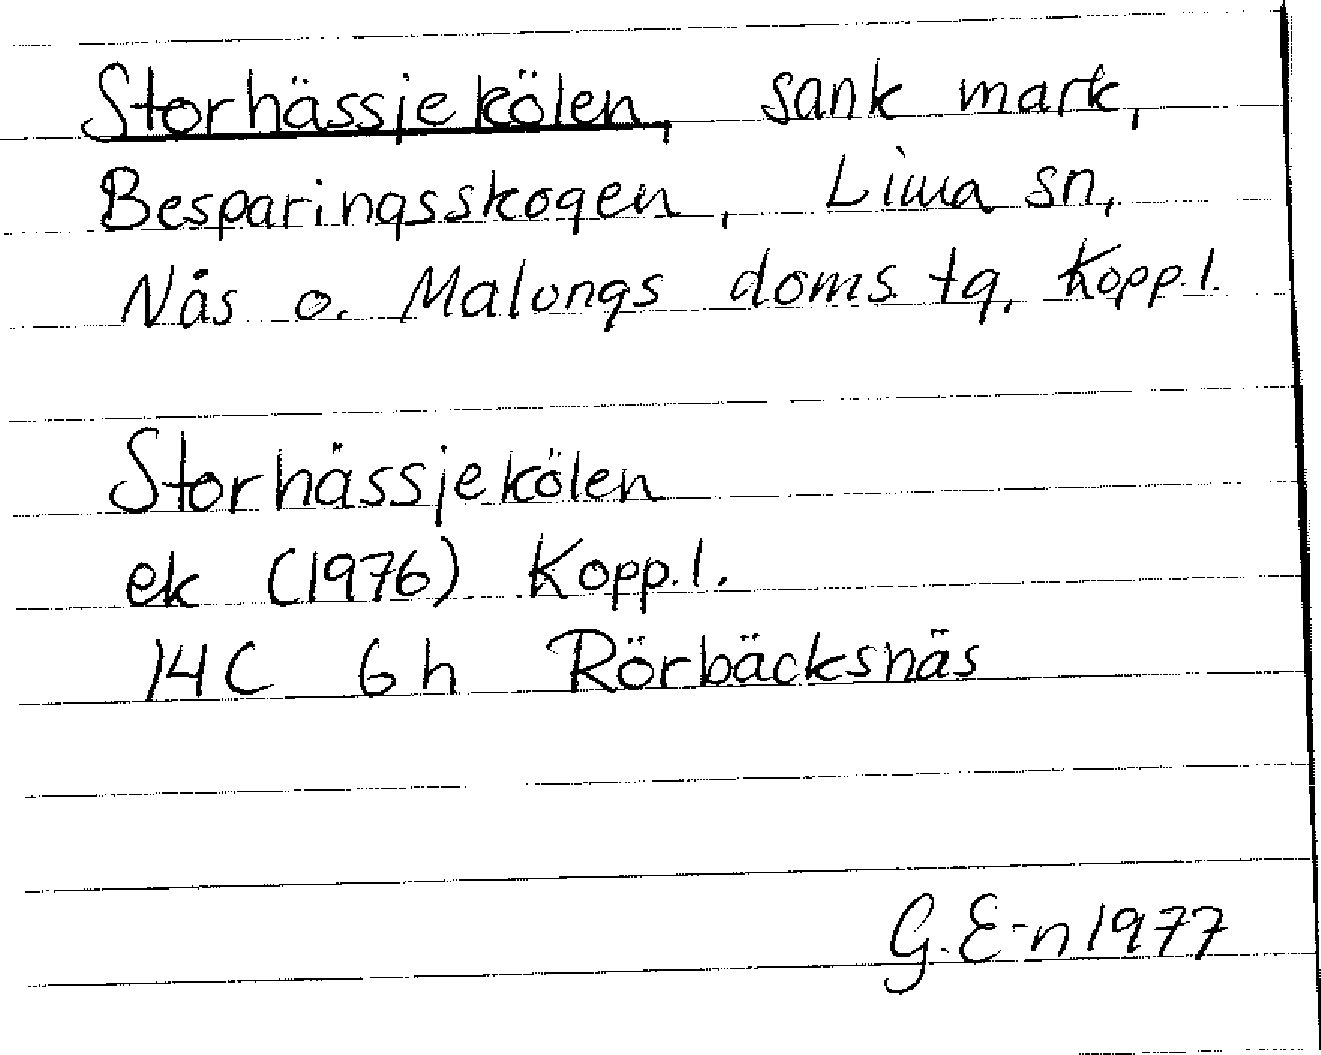 Storhässjekölen, sank mark,
Besparingsskogen, Lima sn,
Nås o. Malungs doms.tg, Kopp.l.
Storhässjekölen
ek (1976) Kopp.l.
14C 6h Rörbäcksnäs
G.E-n 1977